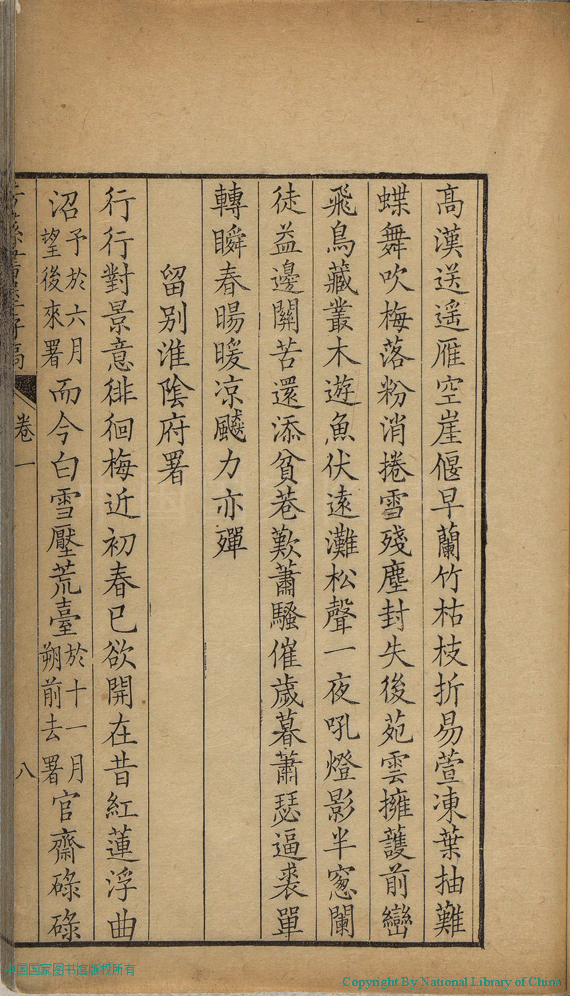 高漢送遥雁空崖偃早蘭竹枯枝折易萱凍葉抽難
蝶舞吹梅落粉消捲雪殘塵封失後苑雲擁護前巒
飛鳥藏叢木遊魚伏遠灘松聲一夜吼燈影半窻闌
徒益邊關苦還添貧巷歎蕭騷催歲暮蕭瑟逼裘單
轉瞬春暘暖凉颷力亦殫
留別淮隂府署
行行對景意徘徊梅近初春已欲開在昔紅蓮浮曲
沼予於六月望後來署而今白雪壓荒臺於十一月朔前去署官齋碌碌
卷一
八
中国国家图书馆版权所有
Copyright By National Library of China